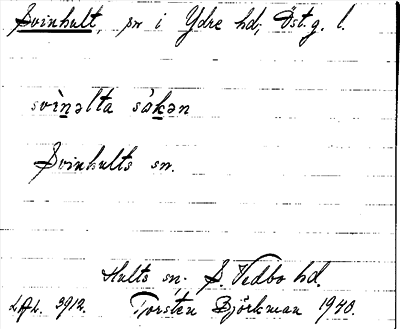 Svinhult, sn i Ydre hd, Östg. l.
svìn̲əlta sàk̲ən
Svinhults sn.
Hults sn. S. Vedbo hd.
3912. Torsten Björkman 1940.